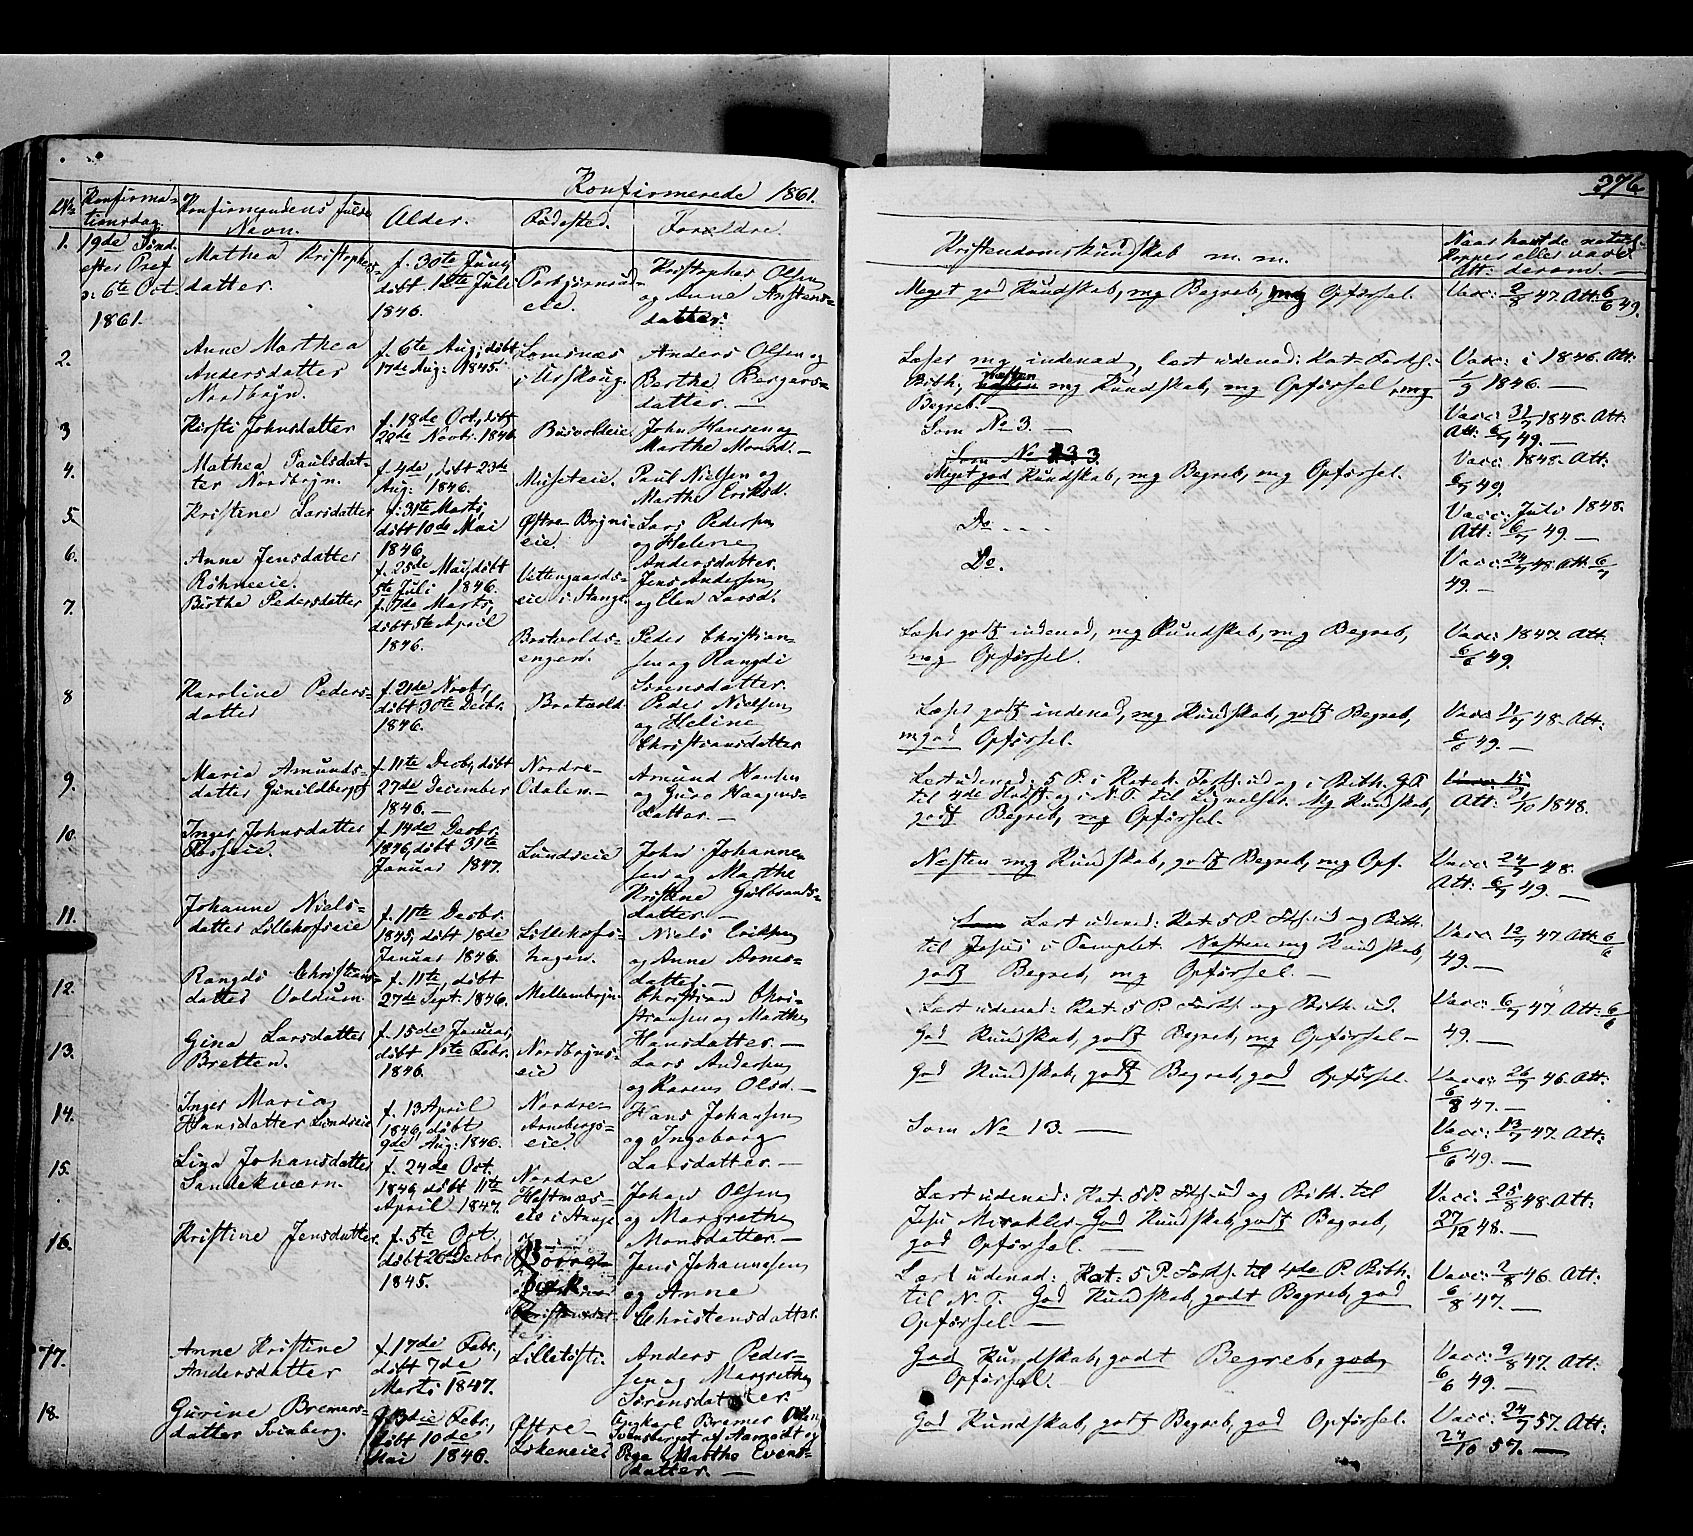 Konfirmerede 1861.
376
Konfirma-
tionsdag
Konfirmandens fulde
Navn.
Alder.
Födested.
Forældre.
Kristendomskundskab m. m.
Naar havt de naturl.
Kopper eller vacc.
Att: derom.
1.
19de Sönd.
efter Pref
o: 6te Oct.
1861.
Mathea Kristophers-
datter.
f. 30te Juni,
döbt 12te Juli
1846.
eie.
Kristopher Olsen
og Anne Anstens-
datter.
Meget god Kundskab, mg Begreb, mg Opförsel.
Vacc: 2/8 47. Att: 6/6 49.
2.
Anne Marthea
Andersdatter
Nordbÿn.
f. 6te Aug., döbt
17de Aug: 1845.
Lomsnæs
i Urskoug.
Anders Olsen og
Berthe Bergers-
datter. —
Læser mg indenad, lært udenad: Kat. Forkl.
Bibh; næsten mg Kundskab, mg Opförsel, mg
Begreb. —
Vacc: i 1846. Att:
1/9 1846. —
3
Kirsti Johnsdatter
f. 18de Oct., döbt
22de Novbr. 1846
John Hansen og
Marthe Monsd. —
Som No 3. —
Vacc: 31/7 1848. Att:
Att: 6/7 49. —
4.
Mathea Paulsdat-
ter Nordbÿn.
f. 4de, döbt 23de
Aug: 1846.
Museteie.
Paul Nielsen og
Marthe Eriksd.
Som No 3.
Meget god Kundskab, mg Begreb, mg Opförsel.
Vacc: 1848. Att:
6/7 49.
5.
Kristine Larsdatter
f. 31te Marts,
döbt 10de Mai
1846.
Østre Bÿni-
eie.
Lars Pedersen
og Helene
Andersdatter.
Do. - - -
Vacc: Juli 1848.
Att: 6/7 49. —
6.
Anne Jensdatter
Röhneeie.
f. 25de Mai, döbt
5te Juli 1846.
Vettengaards-
eie i Stange.
Jens Andersen
og Elen Larsd.
Do.
Vacc: 24/7 48. Att: 6/7
49. —
7.
Birthe Pedersdatter
f. 7de Marts,
döbt 5te April
1846.
Brotvolds-
engen.
Peder Christian-
sen og Rangdi
Sörensdatter.
Læser godt indenad, mg Kundskab, mg Begreb,
meg Opförsel.
Vacc: 1847. Att:
6/6 49.
8
Karoline Peders-
datter
f. 21de Novbr,
döbt 30te Decbr.
1846.
Brotvold
Peder Nielsen
og Helene
Christiansdatter
Læser godt indenad, mg Kundskab, godt Begreb,
mgod Opförsel.
Vacc: 11/7 48. Att:
6/6 49. —
9.
Maria Amunds-
datter Gunildberget
f. 11te Decb., döbt
27de December
1846. —
Nordre-
Odalen. —
Amund Hansen
og Guro Haagens-
datter. —
Lært udenad: 5 P. i Katek. Forkl. ud og i Bibh. G.T.
til 4de Hovst. og i N.T. til Lignelser. Mg Kundskab,
godt Begreb, mg Opförsel.
Att: /10 1848.
10.
Inger Johnsdatter
f. 14de Decbr.
1846, döbt 31te
Januar 1847.
Lundseie
John Johanne-
sen og Marthe
Kristine Gulbrands-
datter. —
Næsten mg Kundskab, godt Begreb, mg Opf.
Vacc: 24/7 48.
Att: 6/7 49. —
11.
Johanne Niels-
datter Lillehofseie
f. 11te Decbr.
1845, döbt 18de
Januar 1846.
Lillehofs-
hagen.
Niels Eriksen
og Anne Arnes-
datter. —
Som Lært udenad: Kat. 5 P. Fkl. ud og Bibh.
til Jesus i Templet. Næsten mg Kundskab,
godt Begreb, mg Opförsel. —
Vacc: 12/7 47. Att: 6/6
49. —
12.
Rangdi Christians-
datter Voldum.
f. 11te, döbt
27de Sept. 1846.
Mellembÿn
Christian Chri-
stiansen og Marthe
Hansdatter. —
Lært udenad: Kat: 5 P. Forkl. og Bibh. ud.
God Kundskab, godt Begreb, mg Opförsel —
Vacc: 6/7 47. Att: 6/6
49. —
13.
Gina Larsdatter
Bretten.
f. 15de Januar,
döbt 1ste Febr.
1846.
Nordbÿns-
eie
Lars Andersen
og Karen Olsd. —
God Kundskab, godt Begreb, god Opförsel.
Vacc: 26/7 46. Att:
6/8 47. —
14.
Inger Maria
Hansdatter Lundseie
f. 13 April
1846, döbt
9de Aug: 1846.
Nordre-
Arnebergs-
eie.
Hans Johansen
og Ingeborg
Larsdatter. —
Som No 13. —
Vacc: 13/7 47. Att:
6/6 49. —
15.
Lina Johansdatter
Sandekværn.
f. 24de Oct.
1846, döbt 11te
April 1847.
Nordre
Hostnæs-
eie i Stange
Johan Olsen
og Margrethe
Monsdatter. —
Lært udenad: Kat. 5 P. Fkl. ud og Bibh. til
Jesu Mirakler. God Kundskab, godt Begreb,
god Opförsel. —
Vacc: 25/8 48. Att:
27/12 48. —
16.
Kristine Jensdatter.
f. 5te Oct.
döbt 26de Decbr
1845.
Jens Johannesen
og Anne
Christensdatter.
Lært udenad: Kat: 5 P. Forkl. til 4de P. Bibh.
til N. T. God Kundskab, godt Begreb, god
Opförsel. —
Vacc: 2/8 46. Att:
6/8 47. —
17.
Anne Kristine
Andersdatter
f. 17de Febr.,
döbt 7de
Marts 1847.
Anders Peder-
sen og Margrethe
Sörensdatter.
God Kundskab, godt Begreb, god
Opförsel. —
Vacc: 9/8 47. Att:
6/6 49. —
18.
Gurine Bremers-
datter Svenberg.
f. 13de Febr.,
döbt 10de
Mai 1846.
Østre-
Lökeneie.
Ungkarl Bremer Olsen
Svensberget af og
Pige Marthe Evens-
datter. —
God Kundskab, godt Begreb, god Opförsel.
Vacc: 24/7 57. Att:
24/10 57. —